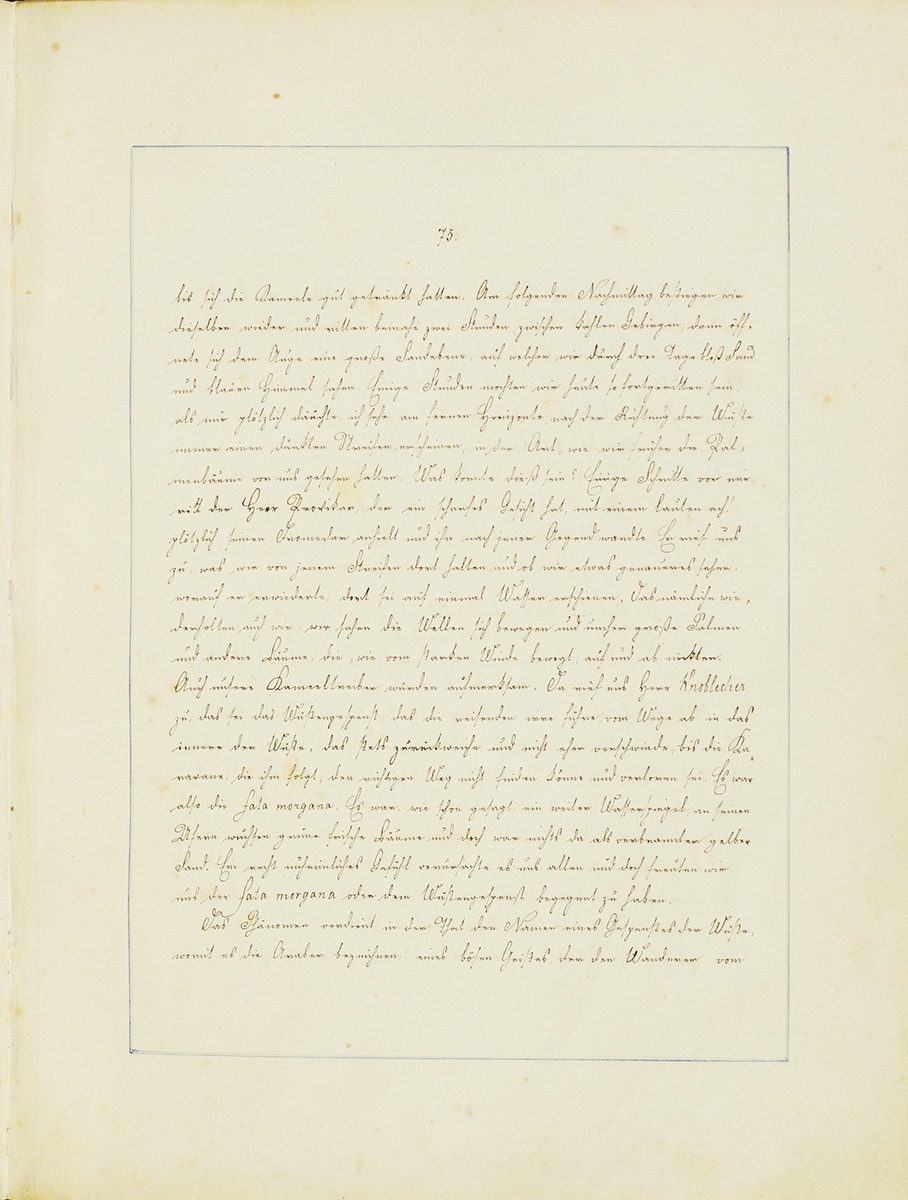 75.
bis sich die Kameele gut getränkt hatten. Am folgenden Nachmittag bestiegen wir
dieselben wieder und ritten beinahe zwei Stunden zwischen kahlen Gebirgen; dann öff-
nete sich dem Auge eine große Sandebene, auf welcher wir durch drei Tage bloß Sand
und blauen Himmel sahen. Einige Stunden mochten wir heute so fortgeritten sein,
als mir plötzlich däuchte, ich sehe am fernen Horizonte nach der Richtung der Wüste
immer einen dunklen Streifen erscheinen, in der Art, wie wir früher die Pal-
menbäume von uns gesehen hatten. Was konnte dieß sein? Einige Schritte vor mir
ritt der Herr Provikar, der ein scharfes Gesicht hat, mit einem lauten ach!
plötzlich seinen Dromedar anhielt und ihn nach jener Gegend wandte. Er rief uns
zu, was wir von jenem Streifen dort halten und ob wir etwas genaueres sehen,
worauf er erwiederte, dort sei auf einmal Wasser erschienen. Das nämliche wie-
derholten auch wir: wir sahen die Wellen sich bewegen und umher große Palmen
und andere Bäume, die, wie vom starken Winde bewegt, auf und ab nickten.
Auch unsere Kameeltreiber wurden aufmerksam. Da rief uns Herr Knoblecher
zu, das sei das Wüstengespenst, das die reisenden irre führe vom Wege ab in das
innere der Wüste, das stets zurückweiche und nicht eher verschwinde, bis die Ka-
ravane, die ihm folgt, den richtigen Weg nicht finden könne und verloren sei. Es war
also die fata morgana. Es war, wie schon gesagt, ein weiter Wasserspiegel, an seinen
Ufern wuchsen grüne frische Bäume und doch war nichts da als verbrannter gelber
Sand. Ein recht unheimliches Gefühl verursachte es uns allen und doch freuten wir
uns der fata morgana oder dem Wüstengespenst begegnet zu haben.
Das Phänomen verdient in der That den Namen eines Gespenstes der Wüste,
womit es die Araber bezeichnen, eines bösen Geistes, der den Wanderer vom